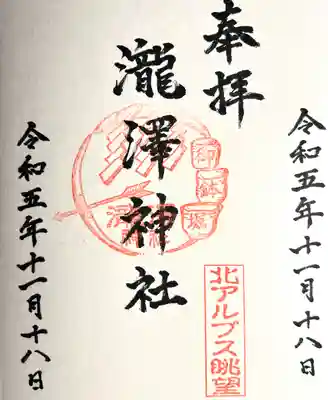 令和五年十一月十八日
奉拝
瀧澤神社
御鉢堀
北アルプス眺望
令和五年十一月十八日